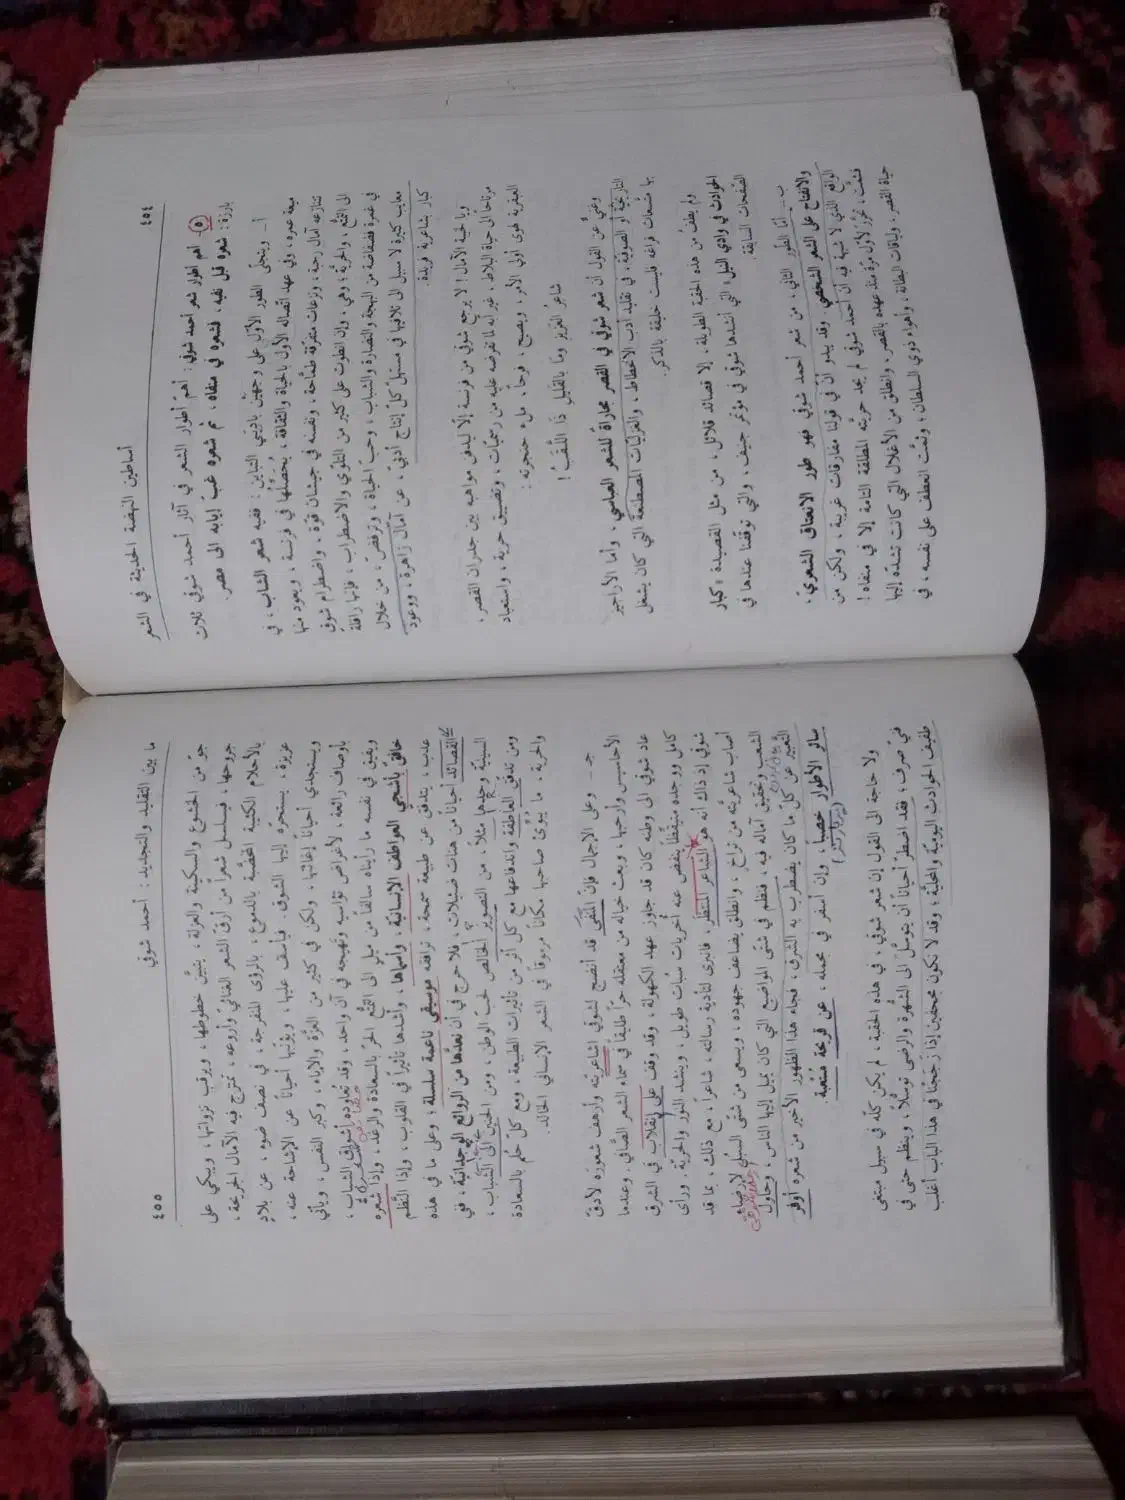 ٤٥٤
أساطين النهضة الحديثة في الشعر
٥- أهم أطوار شعر أحمد شوقي: أهمّ أطوار الشعر في آثار أحمد شوقي ثلاث
بارزة: شعره قبل نفيه، فشعره في منفاه، ثم شعره غبّ إيابه الى مصر.
أ- ويتجلّى الطور الأوّل على وجهيْن باديتي التباين: ففيه شعر الشاب، في
ميعة عمره، وفي عهد اتصاله الأول بالحياة والثقافة، يُحَصِّلُها في فرنسة، ويعود منها
تتنازعه آمال رحبة، ونزعات متفرقة طمّاحة، ونفسه في جيشان قوة، واضطرام شوق
الى التمتّع، والحريّة؛ وهي، وإن انطوت على كثير من التلوّي والاضطراب، فإنها رافلة
في غمرة فضفاضة من البهجة والنضارة والشباب، وحبّ الحياة، وترفض، من خلال
معايب كثيرة لا سبيل الى تلافيها في مستهلّ كلّ إنتاج أدبيّ، عن آمال زاهرة، ووعود
كبار بشاعرية فريدة.
ويا لخيبة الآمال! لا يرجع شوقي من فرنسة إلّا ليدفن مواهبه بين جدران القصر،
مرتاحاً الى حياة البلاط، غير آبه لما تفرضه عليه من رسميّات، وتضييق حرية، واستعباد
العبقرية لهوى أولي الأمر، ويصبح، فرحاً، ملء حنجرته:
شاعرُ العَزيزِ وما بالقليلِ ذا اللَّقَبُ!
وغنيّ عن القول أن شعر شوقي في القصر مجاراةٌ للشعر العباسي، وأما الأراجيز
التاريخيّة أو الصوفيّة، في تقليد أدب الانحطاط، والغزليّات المصطنعة التي كان يشغل
بها متّسعات فراغه فليست خليقة بالذكر.
ولم يطفُ من هذه الحقبة الطويلة، إلا قصائد قلائل، من مثل القصيدة «كبار
الحوادث في وادي النيل» التي أنشدها شوقي في مؤتمر جنيف، والتي توقّفنا عندها في
الصّفحات السابقة.
ب- أمّا الطور الثاني، من شعر أحمد شوقي فهو طور الانعتاق الشعريّ،
والانفتاح على الشعر الشخصي. وقد يبدو انّ في قولنا مفارقات غريبة، ولكن من
الواقع الذي لا شبهة فيه أن أحمد شوقي لم يجد حريته المطلقة التامة إلا في منفاه!
فثَمّت، تحرّر لأول مرّة منذ عهده بالقصر، وانطلق من الأغلال التي كانت تشدّه إليها
حياة القصر، ولياقات البطالة، وأهواء ذوي السلطان، وثَمّت انعطف على نفسه، في
٤٥٥
ما بين التقليد والتجديد: أحمد شوقي
جوّ من الخشوع والسكينة والعزلة، يتبيّن خطوطها، ويرقب نزواتها، ويبكي على
جروحها، فيسلسل شعراً من أرقّ الشعر الغنائيّ وأروعه، تمتزج فيه الآمال الجريحة،
بالأحلام الكئيبة المخضّبة بالدموع، بالرؤى المتفرجة، في نصف ضوء، عن بلادٍ
عزيزة، يستحثّه إليها الشوق، فيأسف عليها، ويؤنّبها أحياناً عن الإشاحة عنه،
ويستجدي أحياناً إغاثتها، ولكن في كثير من العزّة والاباء، وكبر النفس، ويأتي
بأوصاف رائعة، لأعراض تؤاسيه وتهيجه في آن واحد، وقد تُعاوده أشواق الشباب،
ويفيق في نفسه ما رأيناه سالفاً من ميل الى التمتّع الحرّ بالسعادة والرغد، وإذا شعره
حافلٌ بأشجى العواطف الإنسانيّة، وأسماها، وأشدها تأثيراً في القلوب، وإذا النَّظم
عذب، يتدفق عن طبيعة سمحة، ترافقه موسيقى ناعمة سلسلة؛ وعلى ما في هذه
القصائد أحياناً من هنات ضئيلات، فلا حرج في أن نعدّها من الروائع الوجدانيّة، ففي
السينيّة وحدها مثلاً، من التصوير الخالص لحبّ الوطن، ومن الحنين إلى الشباب،
ومن تدفّق العاطفة واندفاعها مع كل أثر من تأثيرات الطبيعة، ومع كلّ حلم بالسعادة
والحرية، ما يُبَوّئ صاحبها مكاناً مرموقاً في الشعر الإنساني الخالد.
جـ- وعلى الاجمال فإنّ المنْفَى قد أنضج لشوقي شاعريّته وأرهف شعوره لأدقّ
الأحاسيس وأرحبها، وبعث خياله من معتقله حراً طليقاً في سماء الشعر الصّافي. وعندما
عاد شوقي الى وطنه كان قد جاوز عهد الكهولة، وقد وقف على انقلاب في الشرق
كامل ووجده متيقّظاً ينفض عنه أُخريات سُبات طويل، وينشد النور والحرية. ورأى
شوقي إذ ذاك أنه هو الشاعر المنتظَر، فانبرى لتأدية رسالته، شاعراً، مع ذلك، بما قد
أصاب شاعريّته من تراخٍ، وانطلق يضاعف جهوده، ويسعى من شتى السبل لإرضاء
الشعب وتحقيق آماله فيه، فنظم في شتّى المواضيع التي كان يميل إليها الناس، وحاول
التعبير عن كلّ ما كان يضطرب به الشرق، فجاء هذا الظهور الأخير من شعره أوفر
سائر الأطوار خصباً، وإن أسفر في مجمله، عن قريحة مُتعَبة.
ولا حاجة الى القول إن شعر شوقي، في هذه الحقبة، لم يكن كلّه في سبيل مبتغى
فنيّ صرف، فقد اضطرّ أحياناً أن يتوسّل الى الشهرة والرضى توسّلاً، وينظم حتى في
طفيف الحوادث اليوميّة والمحليّة، وقد لا نكون مجحفين إذا زججنا في هذا الباب أغلب